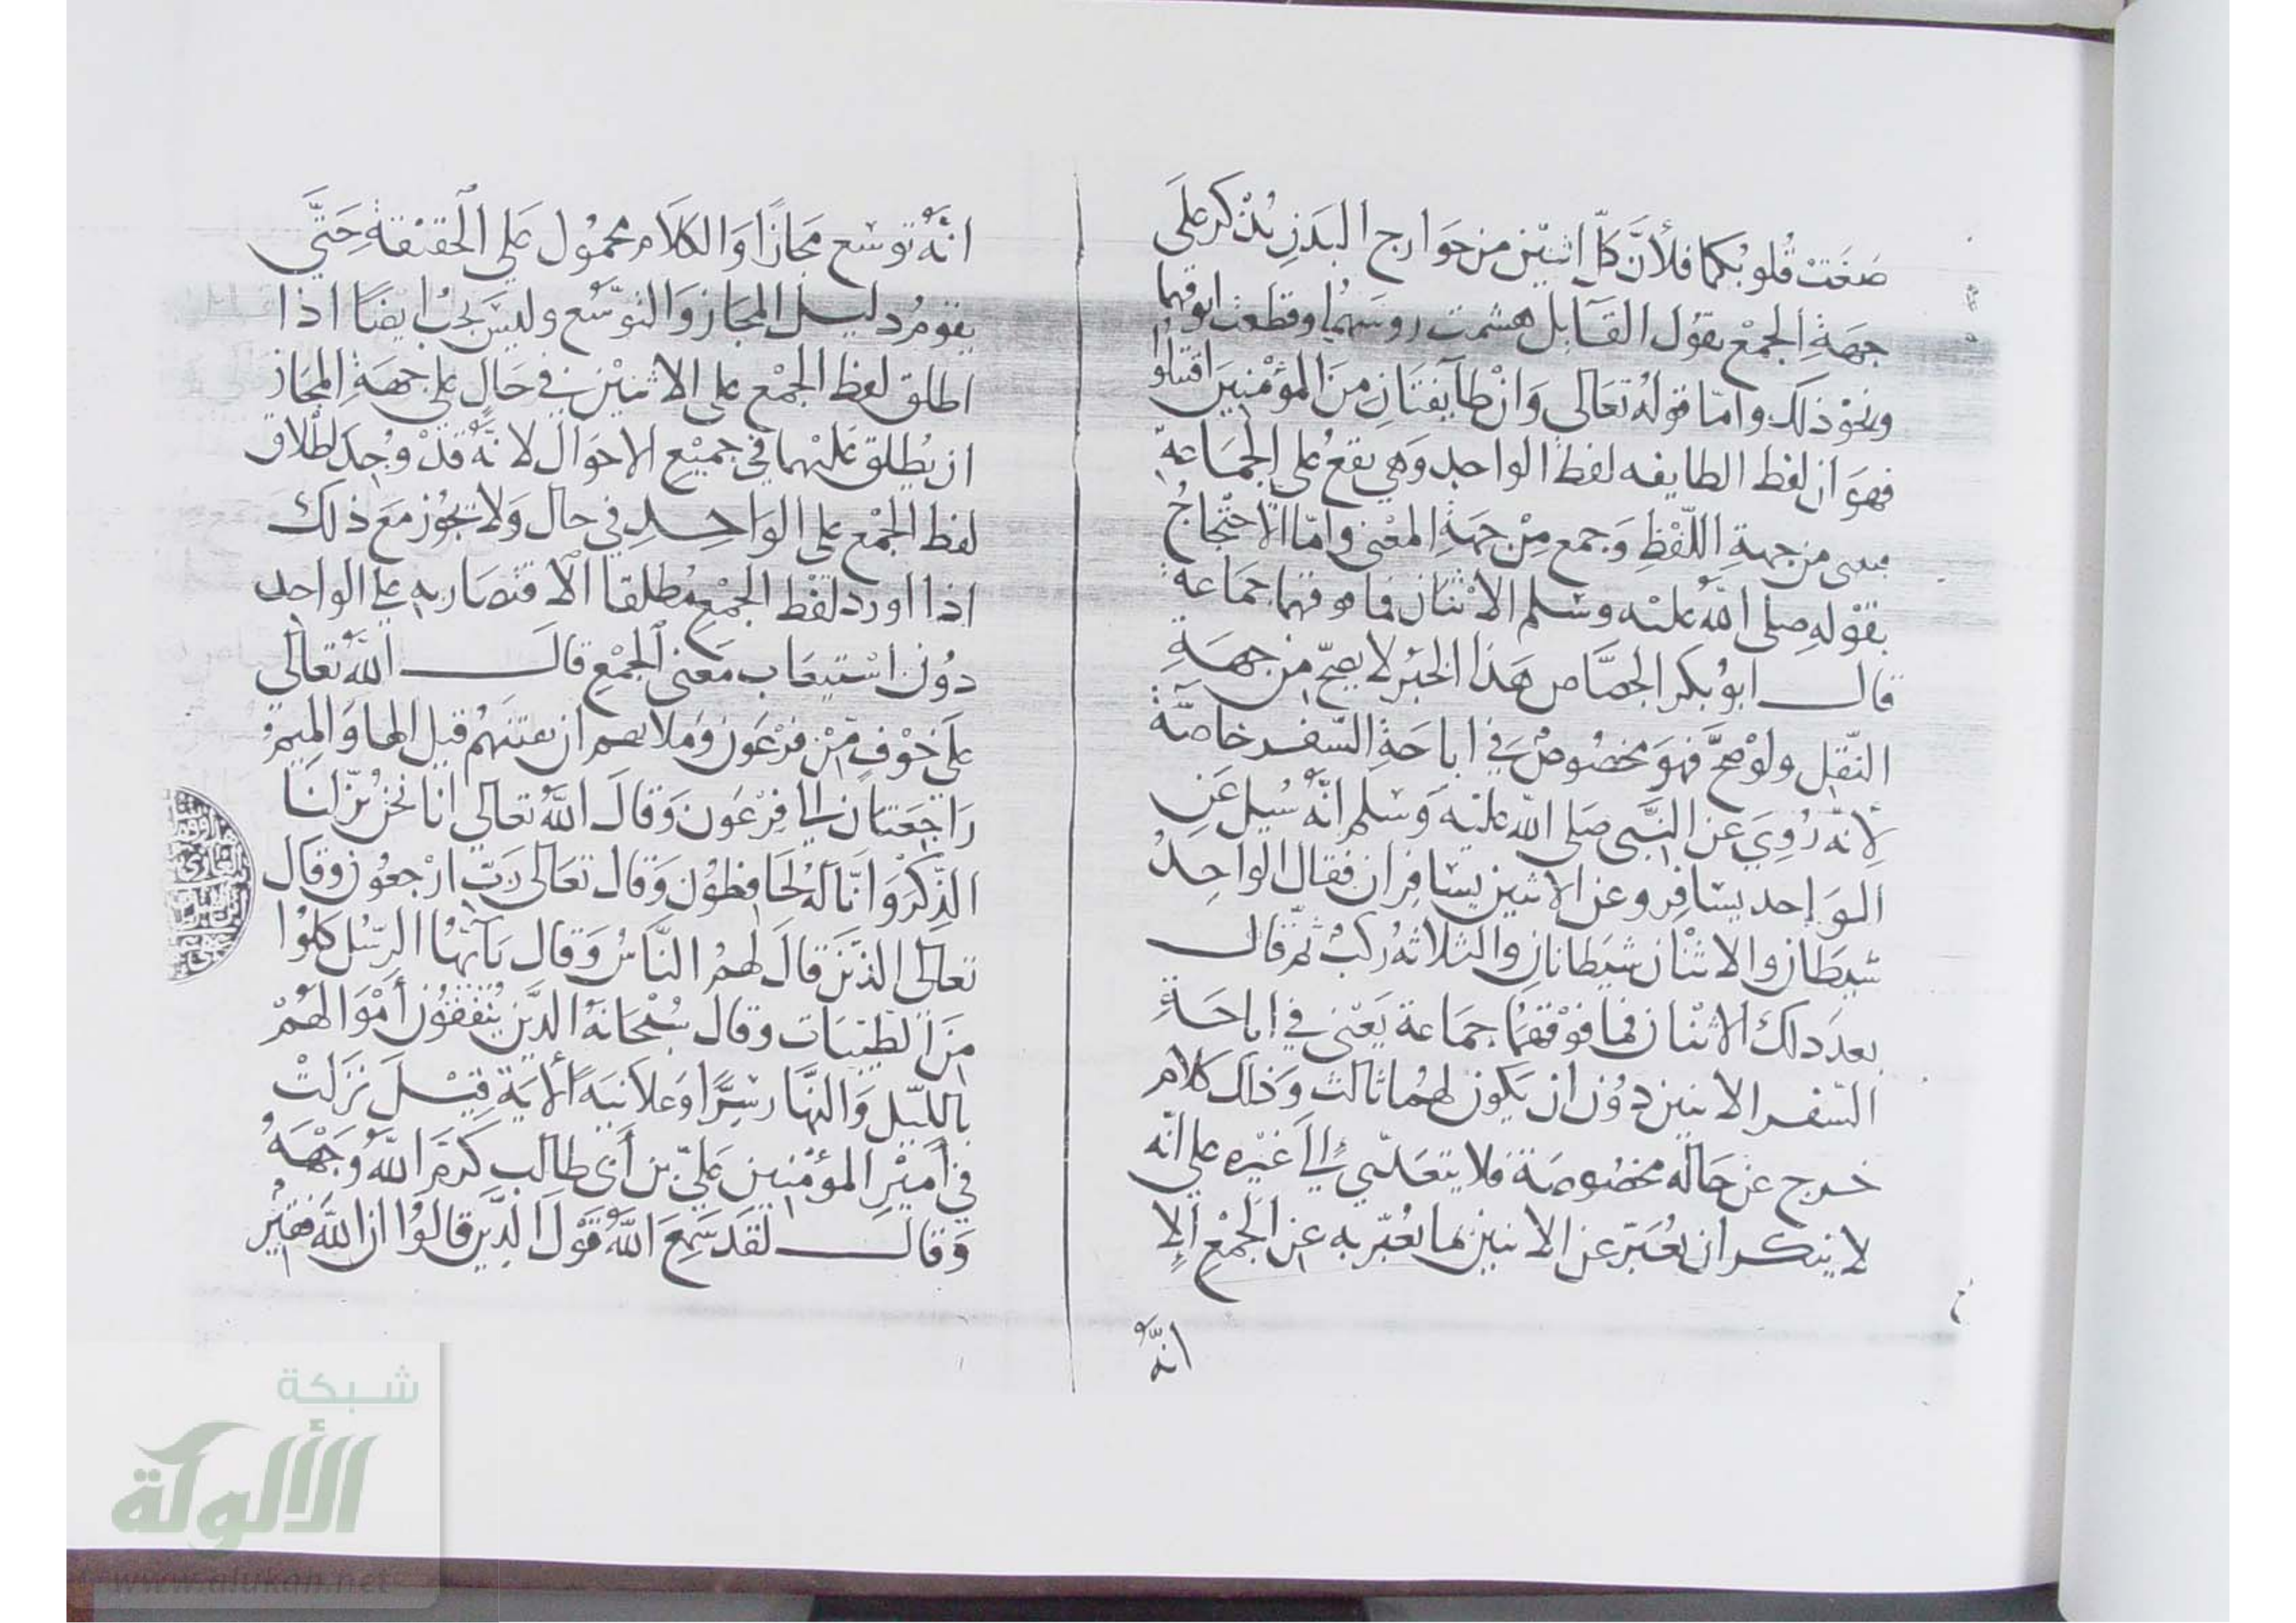 صَغَتْ قُلوبُكما فلأنَّ كلّ اثنين من جَوَارح البَدَنِ يُذْكر عَلَى
جهَةِ الجمْع يقوُل القَايل هشمت روسَهُما وقطعت انوفهما
ونحوْ ذلك وامّا قولهُ تعَالى وَانْ طَآيفتَانِ مِنَ المؤمْنِيَن اقتتلوُا
فهوَ ان لفظ الطايفه لفظ الواحِدِ وَهِيَ يقعُ على الجمَاعَةِ
من جهةِ اللّفْظِ وَجمع مِنْ جهَةِ المعْنى وامّا الاحْتجاجُ
بقوْلهِ صلى اللهُ عليْه وسَلم الاثْنان فما فوقهما جمَاعة
قال ابوُ بكر الجصَّاص هَذا الخبْر لا يصحّ من جهَةِ
النّقل ولوْ صحَّ فهوَ مخصُوصٌ في اباحَةِ السّفر خاصّةً
لأنّهُ رُوِيَ عن النبَّى صَلى اللّه عليْه وَسَلم انّهُ سُيل عَنِ
الوَاحد يسَافِر وعن الاثنين يسَافِران فقال الواحِدُ
شيطان والاثْنان شيَطانانِ والثلاثهُ ركبٌ ثم قال
بعدَ ذلك الاثنان فما فوْقهُما جمَاعة يَعْنى في اباحَةِ
السّفر الاثنين دوُن ان يَكون لهمُا ثالث وَذلك كلام
خرج عن حَالة مخصُوصَة فلا يتعَدّي إلىَ غيْره على انّه
لا ينكر ان يُعَبّر عن الاثنين بما يُعَبّر به عن الجمْعِ الا
انّهُ
انّهُ توسّع مَجَازًا وَالكلَام محموُل عَلي الحقيقةِ حَتَّي
يقومُ دليل المجَاز وَالتوسّع وليسَ يجبُ ايضًا اذا
اطلق لفظ الجمْع على الاثنيْن في حَالٍ على جهَةِ المجَاز
ان يُطلق عَليْهما في جميْع الاحوَال لانّهُ قدْ وُجدَ اطْلاق
لفظ الجْمْع على الوَاحِدِ في حال وَلا يجوُز مَعَ ذلك
اذا اورد لفظ الجمْعِ مُطلقا الاقتصَار به على الواحِدِ
دوُن اسْتيعَاب مَعْنى الجمْعِ قالَ اللهُ تعَالى
عَلَى خوْفٍ مِنْ فرْعَوْن وَمَلايهم ان يفتنهمُ قيل الها وَالميمُ
رَاجعَتان إلى فِرْعَوْن وَقالَ اللهُ تعالى انا نحنُ نزّلنَا
الذِّكرَ وَانّا لهُ لحَافظوُن وَقال تعَالى رَبّ ارْجعوُن وقال
تعالى الذّيَن قالَ لهمُ النَّاسُ وَقال يَآ ايُّهَا الرّسُل كلوُا
منَ الطّيّبَات وقال سُبْحَانهُ الّذيَن يُنفقُون أمْوَالهُمْ
بالليّل وَالنهَّار سِرًّا وَعلانيَةً الآيَة قيْلَ نزَلتْ
في أميْرِ المؤمْنِين عَليّ بن أبى طالب كَرّمَ اللهُ وَجْهَهُ
وَقال لقَدَ سَمِعَ اللهُ قوْلَ الّذيَن قالوُا ان اللهَ فقيْر
شبكة
الألوكة
www.alukah.net